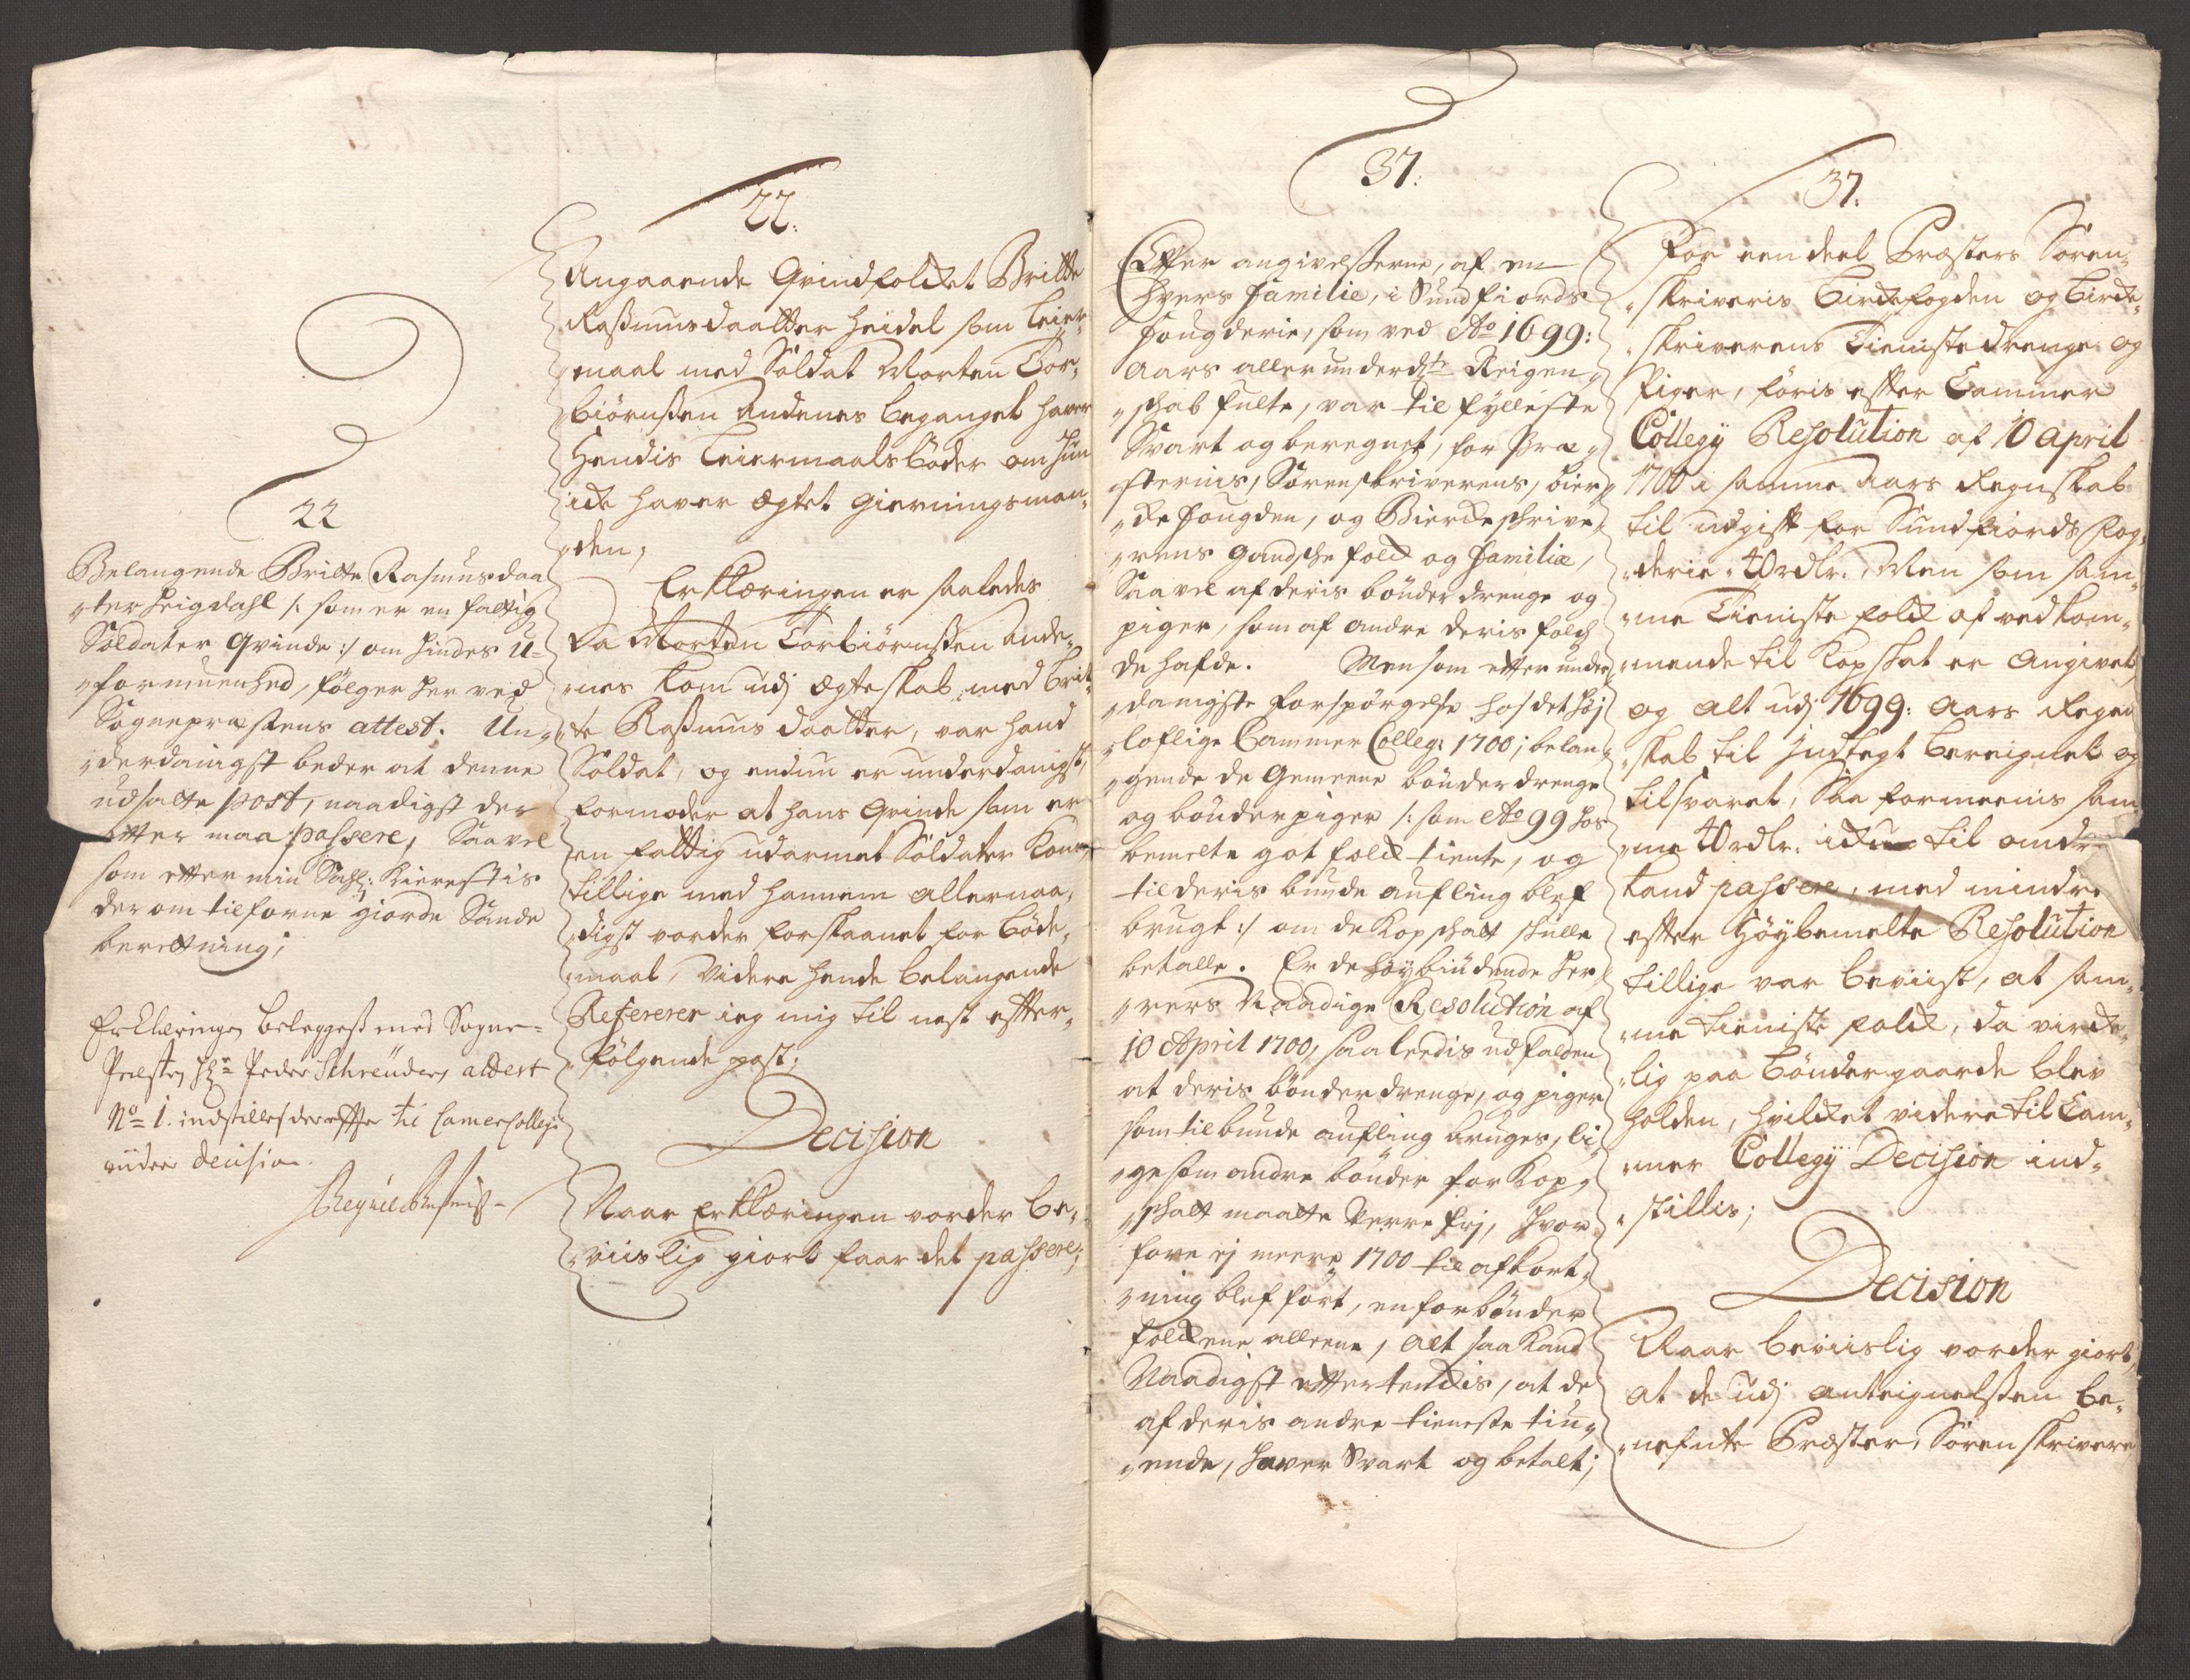 22
Belangende Britte Rasmusdaa
„ter Heigdahl /: som er en fattig
Soldater Qvinde :/ om hindes U-
„formuenhed, følger her ved
Sognepræstens attest. Un„
„derdanigst beder at denne
udsatte post, naadigst der
etter maa passere, Saavel
som etter min Sahl: Kierestis
der om tilforne giorde Sande
berettning;
Erklæringen beleggest med Sogne-
Presten Hr Peder Schreuders attest
No 1. indstilles derefter til Camer Collegi
videre decision.
22.
Angaaende Qvindfolket Britte
Rasmusdaatter Heidel som Leier„
„maal med Soldat Morten Tor„
„biørnssen Andenes beganget haver
Hendis Leiermaals bøder om hun
icke haver ægtet gierningsman„
„den,
Erklæringen er saaledes
Da Morten Torbiørnssen Ande„
„nes kom udj ægteskab med Brit„
„te Rassmusdaatter, var hand
Soldat, og endnu er underdanigst,
formoder at hans Qvinde som er
en fattig udarmet Soldater Kone,
tillige med hannem allernaa„
„digst vorder forskaanet for bøde„
„maal, Videre hende belangende
Refererer ieg mig til nest effter„
„følgende post;
Decision
Naar Erklæringen vorder be„
„viislig giort faar det passere;
37:
Effter angivelsserne, af en
hvers familie, i Sundfiords
fougderie, som ved Ao 1699:
Aars allerunderdste Reigen„
„schab fulte, var til fylleste
Svart og beregnet, for Præ„
„sternis, Sorenskriverens, bier„
„ke fougden, og Bierckeschrive„
„rens gandsche folck og familie,
Saavel af deris bønder drenge og
piger, som af andre deris folch
de hafde. Men som etter under
„danigste forspørgelse hos det Høj
„loflige Cammer Colleg: 1700; belan„
„gende de gemeene bønder drenge
og bønder piger /: som Ao 99 hos
bemelte got folck tiente, og
til deris bunde aufling blef
brugt :/ om de Kopschatt skulle
betalle. Er de høybiudende Her„
„rers Naadige Resolution af
10 April 1700, saaleedis udfalden
at deris bønder drenge, og piger
som til bunde aufling bruges, li„
„ge som andre bønder for Kop„
„schatt maatte Verre frj, hvor„
fore ej meere 1700 til afkort„
„ning blef ført, en for bønder
folckene alleene, alt saa Kand
Naadigst ettertenckis, at de
af deris andre tieneste tiu„
„ende, haver Svart og betalt;
37.
For een deel Præsters Soren„
„skriveris birckefogden og birck„
„skriverens Tieniste drenge og
Piger, føris effter Cammer
Collegÿ Resolution af 10 april
1700 i samme Aars Regnskab
til udgift for Sundfiords fog„
„derie 40 rdlr. Men som sam„
„me Tieniste folck af vedkom„
„mende til Kopskat er angivet,
og alt udj 1699: Aars Regen
„skab til Indtegt bereignet og
tilsvaret, Saa formeenis sam
„me 40 rdlr. icke til
kand passere, med mindre
effter Høybemelte Resolution
tillige var beviist, at sam„
„me tieniste folck, da virck„
„lig paa bøndergaarde blev
holden, hvilcket videre til Cam„
„mer Collegÿ Decision ind„
„stillis;
Decision
Naar beviislig vorder giort,
at de udj anteignelssen be„
„nefnte Præster, Sorenskrivere